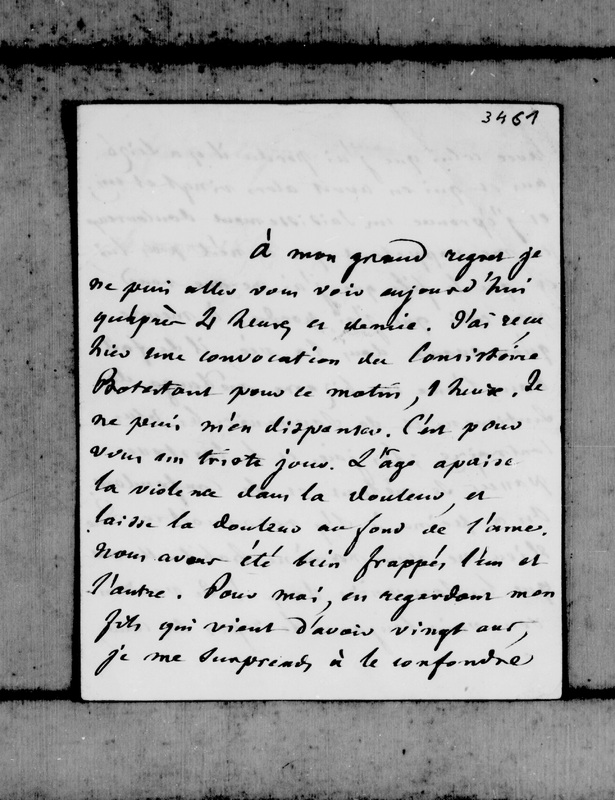 3461
À mon grand regret je
ne puis aller vous voir aujourd'hui
qu'après 4 heures et demie. J'ai reçu
hier une convocation du Consistoire
Protestant pour ce matin, 1 heure. Je
ne puis m'en dispenser. C'est pour
vous un triste jour. L'âge apaise
la violence dans la douleur, et
laisse la douleur au fond de l'ame.
Nous avons été bien frappés l'un et
l'autre. Pour moi, en regardant mon
fils qui vient d'avoir vingt ans,
je me surprends à le confondre